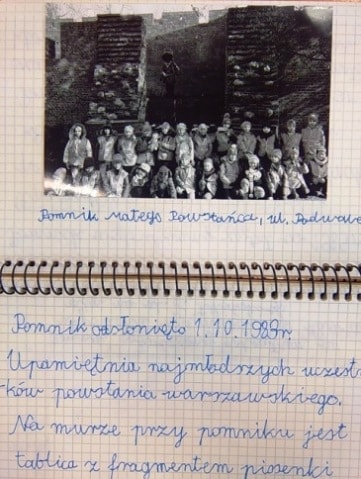 Pomnik Małego Powstańca, ul. Podwale
Pomnik odsłonięto 1.10.1983r.
Upamiętnia najmłodszych uczest-
-ków powstania warszawskiego.
Na murze przy pomniku jest
tablica z fragmentem piosenki